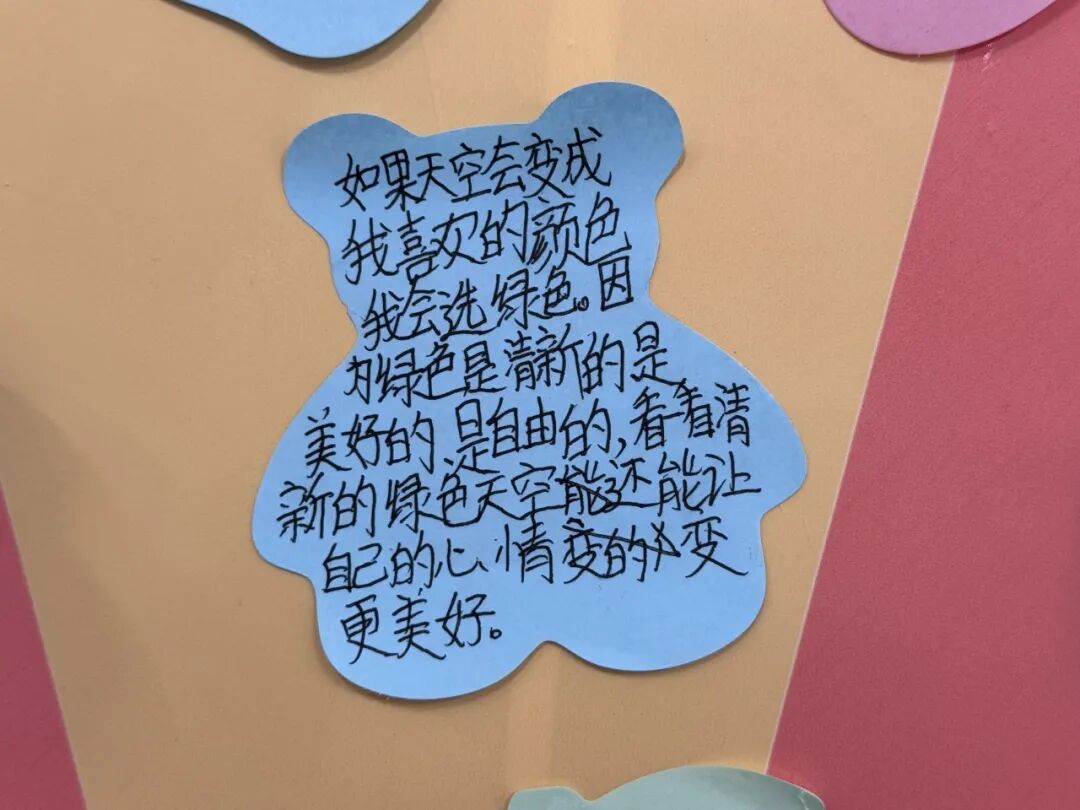 如果天空会变成
我喜欢的颜色
我会选绿色。因
为绿色是清新的是
美好的是自由的,看看清
新的绿色天空还能让
自己的心情变
更美好。